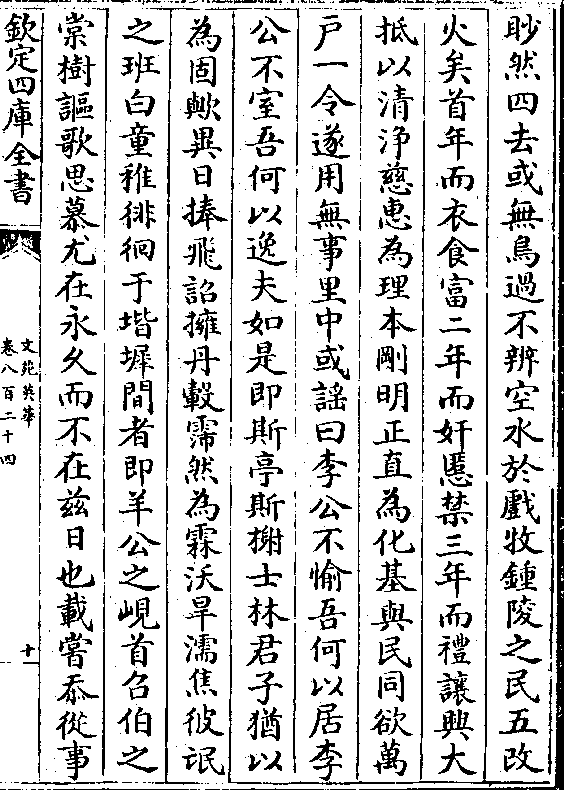 眇然四去或無鳥過不辨空水於戲牧鍾陵之民五改
火矣首年而衣食富二年而奸慝禁三年而禮讓興大
抵以清浄慈惠為理本剛明正直為化基與民同欲萬
戸一令遂用無事里中或謡曰李公不愉吾何以居李
公不室吾何以逸夫如是即斯亭斯榭士林君子猶以
為固歟異日捧飛詔擁丹轂霈然為霖沃旱濡焦彼氓
之班白童稚徘徊于堦墀間者即羊公之峴首召伯之
棠樹謳歌思慕尤在永久而不在兹日也載嘗忝從事
欽定四庫全書
文苑英華
卷八百二十四
十